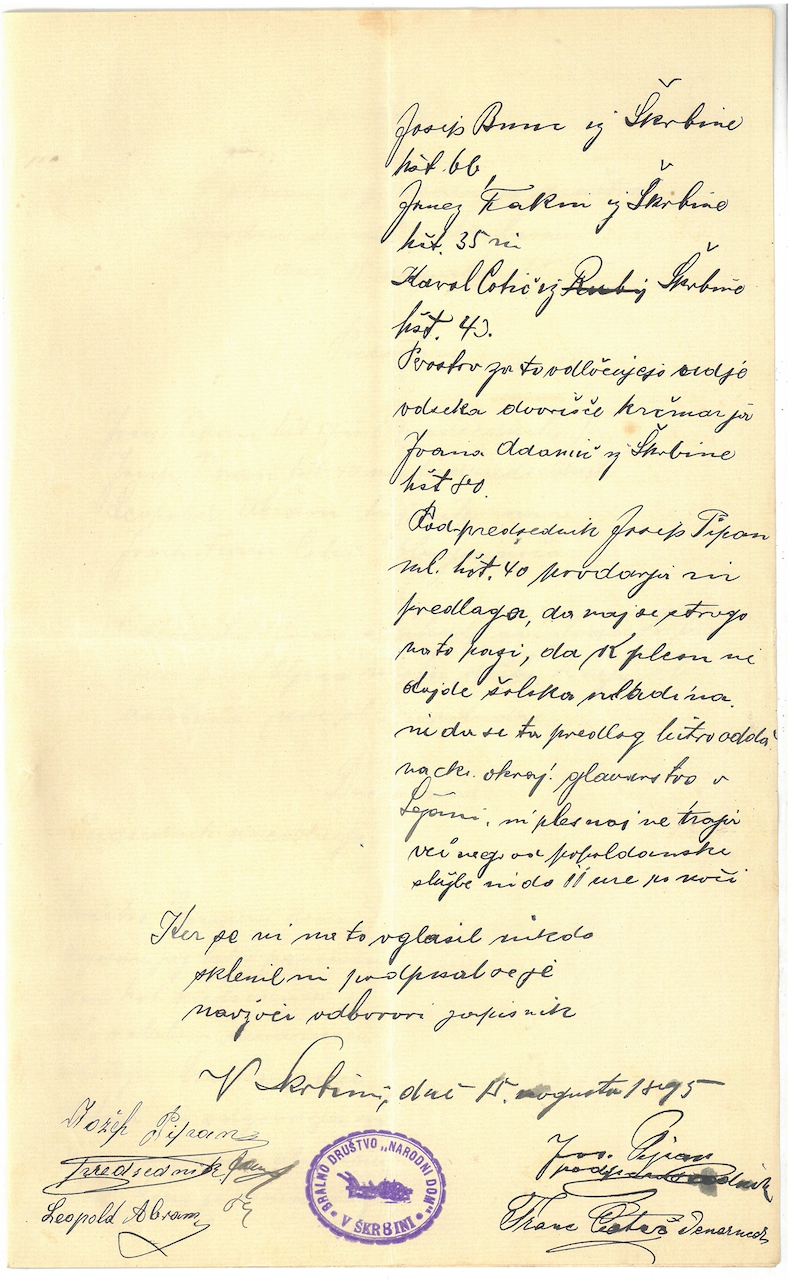 Josip Bunc iz Škrbine
hšt. 66,
Janez Žakni iz Škrbine
hšt. 35 in
Karol Cotič iz Škrbine
hšt. 43.
Prostor za to odločujejo udje
odseka dvorišče krčmarja
Ivana Adamič iz Škrbine
hšt 80.
Podpredsednik Josip Pipan
ml. hšt. 40 povdarja in
predlaga, da naj se strogo
na to pazi, da k plesu ne
dojde šolska mladina.
in da se ta predlog hitro odda
na ck. okraj. glavarstvo v
Sežani, in ples naj ne traja
več nego od popoldanske
službe in do 11 ure po noči
Ker se ni na to oglasil nikdo
sklenil in podpisal se je
navzoči odborovi zapisnik
V Skrbini, dné 15. avgusta 1895
Jožef Pipan
Predsednik
Leopold Abram
BRALNO DRUŠTVO „NARODNI DOM"
V ŠKRBINI
Jos. Pipan
podpredsednik
Franc Denarničar